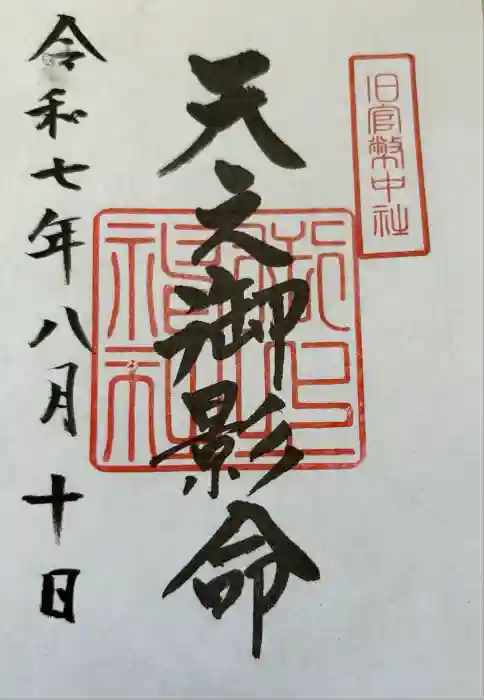 旧官幣中社
天之御影命
御上神社
令和七年八月十日